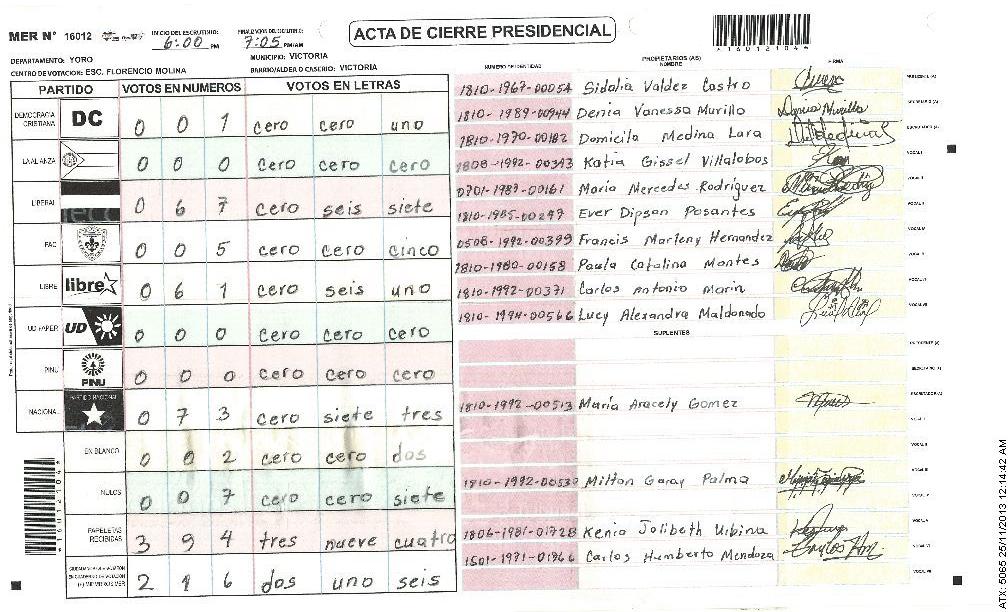 MER N° 16012
INICIO DEL ESCRUTINIO: 6:00 PM
FINALIZACION DEL ESCRUTINIO: 7:05 PM/AM
ACTA DE CIERRE PRESIDENCIAL
*160121044*
DEPARTAMENTO: YORO
MUNICIPIO: VICTORIA
CENTRO DE VOTACION: ESC. FLORENCIO MOLINA
BARRIO/ALDEA O CASERIO: VICTORIA
PARTIDO VOTOS EN NUMEROS VOTOS EN LETRAS
DEMOCRACIA CRISTIANA DC 0 0 1 cero cero uno
LA ALIANZA 0 0 0 cero cero cero
LIBERAL 0 6 7 cero seis siete
FAC 0 0 5 cero cero cinco
LIBRE libre 0 6 1 cero seis uno
UD FAPER UD 0 0 0 cero cero cero
PINU PINU 0 0 0 cero cero cero
NACIONAL PARTIDO NACIONAL 0 7 3 cero siete tres
EN BLANCO 0 0 2 cero cero dos
NULOS 0 0 7 cero cero siete
PAPELETAS RECIBIDAS 3 9 4 tres nueve cuatro
2 1 6 dos uno seis
NUMERO DE IDENTIDAD
PROPIETARIOS (AS)
NOMBRE
FIRMA
1810-1967-00054 Sidalia Valdez Castro
1810-1989-00944 Denia Vanessa Murillo
1810-1970-00182 Domicila Medina Lara
1808-1992-00343 Katia Gissel Villalobos
0701-1987-00161 Maria Mercedes Rodríguez
1810-1985-00247 Ever Dipson Posantes
0508-1992-00399 Francis Marleny Hernandez
1810-1980-00158 Paula Catalina Montes
1810-1992-00371 Carlos Antonio Marin
1810-1994-00566 Lucy Alexandra Maldonado
SUPLENTES
1810-1992-00513 María Aracely Gomez
1810-1992-00530 Milton Garay Palma
1806-1981-01728 Kenia Jolibeth Urbina
1501-1971-01266 Carlos Humberto Mendoza
*160121044*
ATX: 5065 25/11/2013 12:14:42 AM